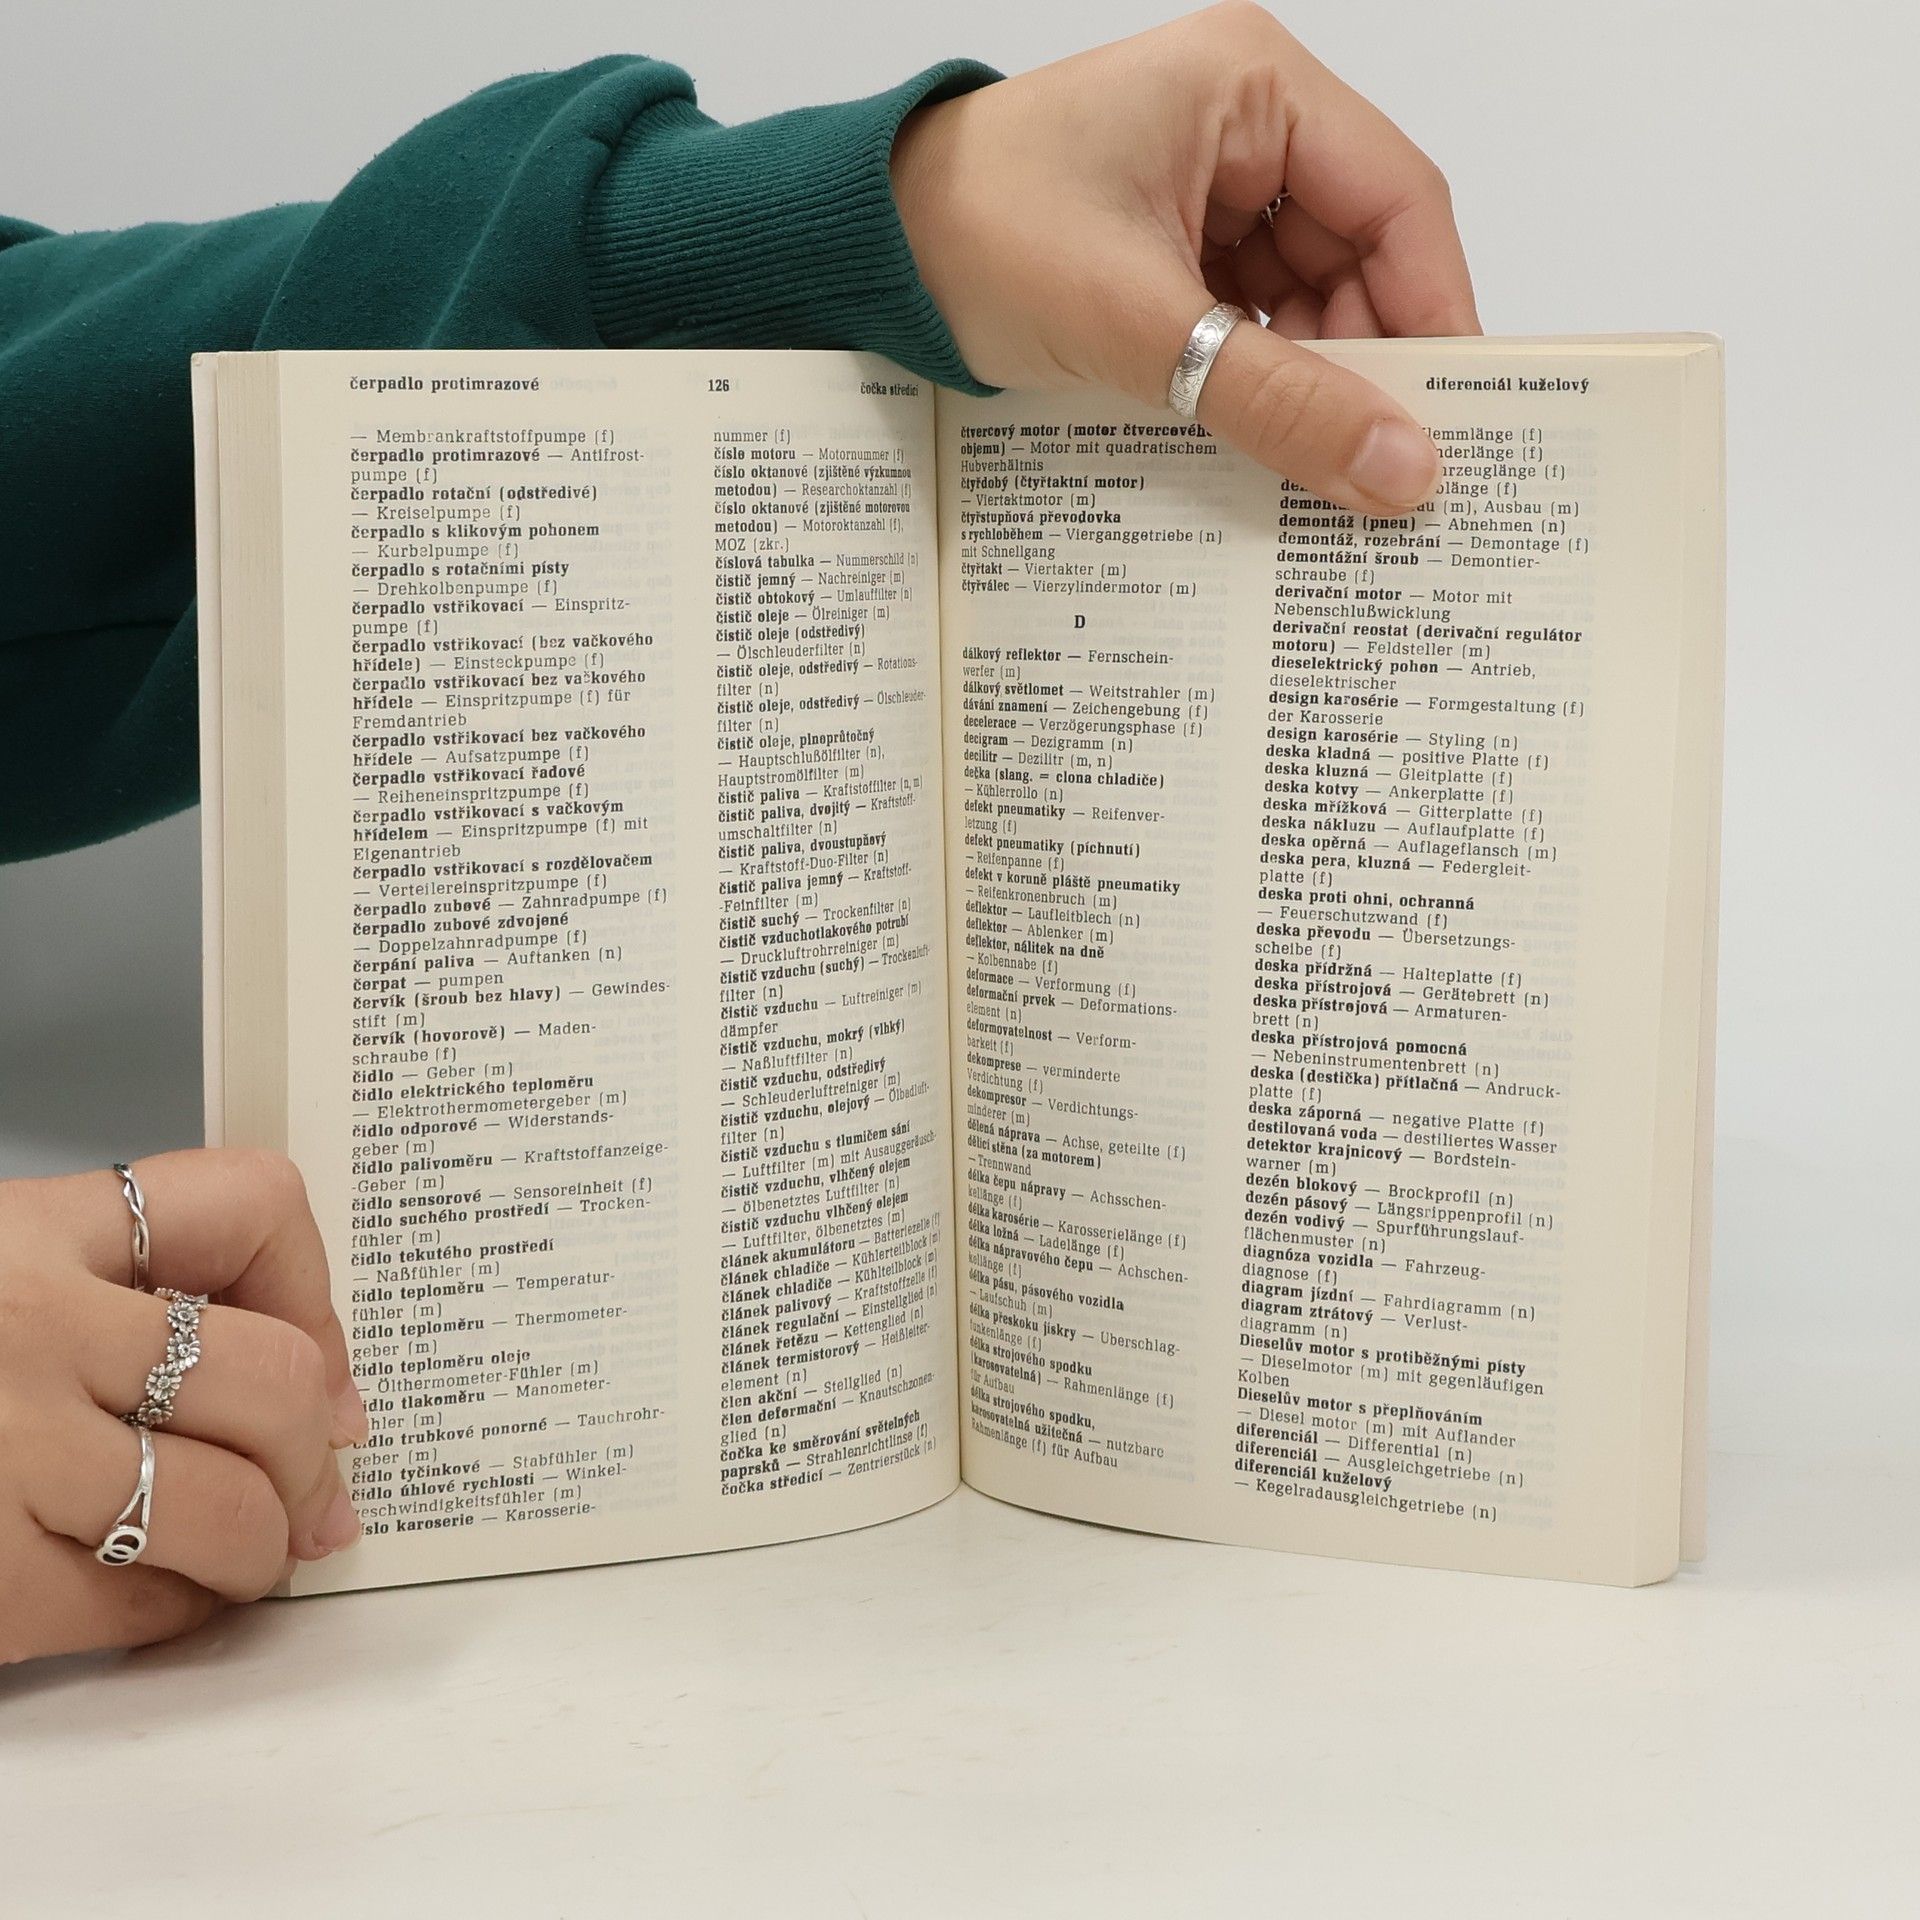 čerpadlo protimrazové 126 čočka středicí
— Membrankraftstoffpumpe (f)
čerpadlo protimrazové — Antifrost-
pumpe (f)
čerpadlo rotační (odstředivé)
— Kreiselpumpe (f)
čerpadlo s klikovým pohonem
— Kurbelpumpe (f)
čerpadlo s rotačními písty
— Drehkolbenpumpe (f)
čerpadlo vstřikovací — Einspritz-
pumpe (f)
čerpadlo vstřikovací (bez vačkového
hřídele) — Einsteckpumpe (f)
čerpadlo vstřikovací bez vačkového
hřídele — Einspritzpumpe (f) für
Fremdantrieb
čerpadlo vstřikovací bez vačkového
hřídele — Aufsatzpumpe (f)
čerpadlo vstřikovací řadové
— Reiheneinspritzpumpe (f)
čerpadlo vstřikovací s vačkovým
hřídelem — Einspritzpumpe (f) mit
Eigenantrieb
čerpadlo vstřikovací s rozdělovačem
— Verteilereinspritzpumpe (f)
čerpadlo zubové — Zahnradpumpe (f)
čerpadlo zubové zdvojené
— Doppelzahnradpumpe (f)
čerpání paliva — Auftanken (n)
čerpat — pumpen
červík (šroub bez hlavy) — Gewindes-
stift (m)
červík (hovorově) — Maden-
schraube (f)
čidlo — Geber (m)
čidlo elektrického teploměru
— Elektrothermometergeber (m)
čidlo odporové — Widerstands-
geber (m)
čidlo palivoměru — Kraftstoffanzeige-
-Geber (m)
čidlo sensorové — Sensoreinheit (f)
čidlo suchého prostředí — Trocken-
fühler (m)
čidlo tekutého prostředí
— Naßfühler (m)
čidlo teploměru — Temperatur-
fühler (m)
čidlo teploměru — Thermometer-
geber (m)
čidlo teploměru oleje
— Ölthermometer-Fühler (m)
čidlo tlakoměru — Manometer-
fühler (m)
čidlo trubkové ponorné — Tauchrohr-
geber (m)
čidlo tyčinkové — Stabfühler (m)
čidlo úhlové rychlosti — Winkel-
geschwindigkeitsfühler (m)
číslo karoserie — Karosserie-
nummer (f)
číslo motoru — Motornummer (f)
číslo oktanové (zjištěné výzkumnou
metodou) — Researchoktanzahl (f)
číslo oktanové (zjištěné motorovou
metodou) — Motoroktanzahl (f),
MOZ (zkr.)
číslová tabulka — Nummerschild (n)
čistič jemný — Nachreiniger (m)
čistič obtokový — Umlauffilter (n)
čistič oleje — Ölreiniger (m)
čistič oleje (odstředivý)
— Ölschleuderfilter (n)
čistič oleje, odstředivý — Rotations-
filter (n)
čistič oleje, odstředivý — Ölschleuder-
filter (n)
čistič oleje, plnoprůtočný
— Hauptschlußölfilter (n),
Hauptstromölfilter (m)
čistič paliva — Kraftstoffilter (n, m)
čistič paliva, dvojitý — Kraftstoff-
umschaltfilter (n)
čistič paliva, dvoustupňový
— Kraftstoff-Duo-Filter (n)
čistič paliva jemný — Kraftstoff-
-Feinfilter (m)
čistič suchý — Trockenfilter (n)
čistič vzduchotlakového potrubí
— Druckluftrohrreiniger (m)
čistič vzduchu (suchý) — Trockenluft-
filter (n)
čistič vzduchu — Luftreiniger (m)
dämpfer
čistič vzduchu, mokrý (vlhký)
— Naßluftfilter (n)
čistič vzduchu, odstředivý
— Schleuderluftreiniger (m)
čistič vzduchu, olejový — Ölbadluft-
filter (n)
čistič vzduchu s tlumičem sání
— Luftfilter (m) mit Ausauggeräusch-
čistič vzduchu, vlhčený olejem
— ölbenetztes Luftfilter (n)
čistič vzduchu vlhčený olejem
— Luftfilter, ölbenetztes (m)
článek akumulátoru — Batteriezelle (f)
článek chladiče — Kühlerteilblock (m)
článek chladiče — Kühlteilblock (m)
článek palivový — Kraftstoffzelle (f)
článek regulační — Einstellglied (n)
článek řetězu — Kettenglied (n)
článek termistorový — Heißleiter-
element (n)
člen akční — Stellglied (n)
člen deformační — Knautschzonen-
glied (n)
čočka ke směrování světelných
paprsků — Strahlenrichtlinse (f)
čočka středicí — Zentrierstück (n)
diferenciál kuželový
čtvercový motor (motor čtvercového
objemu) — Motor mit quadratischem
Hubverhältnis
čtyřdobý (čtyřtaktní motor)
— Viertaktmotor (m)
čtyřstupňová převodovka
s rychloběhem — Vierganggetriebe (n)
mit Schnellgang
čtyřtakt — Viertakter (m)
čtyřválec — Vierzylindermotor (m)
D
dálkový reflektor — Fernschein-
werfer (m)
dálkový světlomet — Weitstrahler (m)
dávání znamení — Zeichengebung (f)
decelerace — Verzögerungsphase (f)
decigram — Dezigramm (n)
decilitr — Dezilitr (m, n)
dečka (slang. = clona chladiče)
— Kühlerrollo (n)
defekt pneumatiky — Reifenver-
letzung (f)
defekt pneumatiky (píchnutí)
— Reifenpanne (f)
defekt v koruně pláště pneumatiky
— Reifenkronenbruch (m)
deflektor — Laufleitblech (n)
deflektor — Ablenker (m)
deflektor, nálitek na dně
— Kolbennabe (f)
deformace — Verformung (f)
deformační prvek — Deformations-
element (n)
deformovatelnost — Verform-
barkeit (f)
dekomprese — verminderte
Verdichtung (f)
dekompresor — Verdichtungs-
minderer (m)
dělená náprava — Achse, geteilte (f)
dělicí stěna (za motorem)
— Trennwand
délka čepu nápravy — Achsschen-
kellänge (f)
délka karosérie — Karosserielänge (f)
délka ložná — Ladelänge (f)
délka nápravového čepu — Achschen-
kellänge (f)
délka pásu, pásového vozidla
— Laufschuh (m)
délka přeskoku jiskry — Überschlag-
funkenlänge (f)
délka strojového spodku
(karosovatelná) — Rahmenlänge (f)
für Aufbau
délka strojového spodku,
karosovatelná užitečná — nutzbare
Rahmenlänge (f) für Aufbau
(f)
(f)
(f)
(f)
(m), Ausbau (m)
demontáž (pneu) — Abnehmen (n)
demontáž, rozebrání — Demontage (f)
demontážní šroub — Demontier-
schraube (f)
derivační motor — Motor mit
Nebenschlußwicklung
derivační reostat (derivační regulátor
motoru) — Feldsteller (m)
dieselektrický pohon — Antrieb,
dieselektrischer
design karosérie — Formgestaltung (f)
der Karosserie
design karosérie — Styling (n)
deska kladná — positive Platte (f)
deska kluzná — Gleitplatte (f)
deska kotvy — Ankerplatte (f)
deska mřížková — Gitterplatte (f)
deska nákluzu — Auflaufplatte (f)
deska opěrná — Auflageflansch (m)
deska pera, kluzná — Federgleit-
platte (f)
deska proti ohni, ochranná
— Feuerschutzwand (f)
deska převodu — Übersetzungs-
scheibe (f)
deska přídržná — Halteplatte (f)
deska přístrojová — Gerätebrett (n)
deska přístrojová — Armaturen-
brett (n)
deska přístrojová pomocná
— Nebeninstrumentenbrett (n)
deska (destička) přítlačná — Andruck-
platte (f)
deska záporná — negative Platte (f)
destilovaná voda — destiliertes Wasser
detektor krajnicový — Bordstein-
warner (m)
dezén blokový — Brockprofil (n)
dezén pásový — Längsrippenprofil (n)
dezén vodivý — Spurführungslauf-
flächenmuster (n)
diagnóza vozidla — Fahrzeug-
diagnose (f)
diagram jízdní — Fahrdiagramm (n)
diagram ztrátový — Verlust-
diagramm (n)
Dieselův motor s protiběžnými písty
— Dieselmotor (m) mit gegenläufigen
Kolben
Dieselův motor s přeplňováním
— Diesel motor (m) mit Auflander
diferenciál — Differential (n)
diferenciál — Ausgleichgetriebe (n)
diferenciál kuželový
— Kegelradausgleichgetriebe (n)